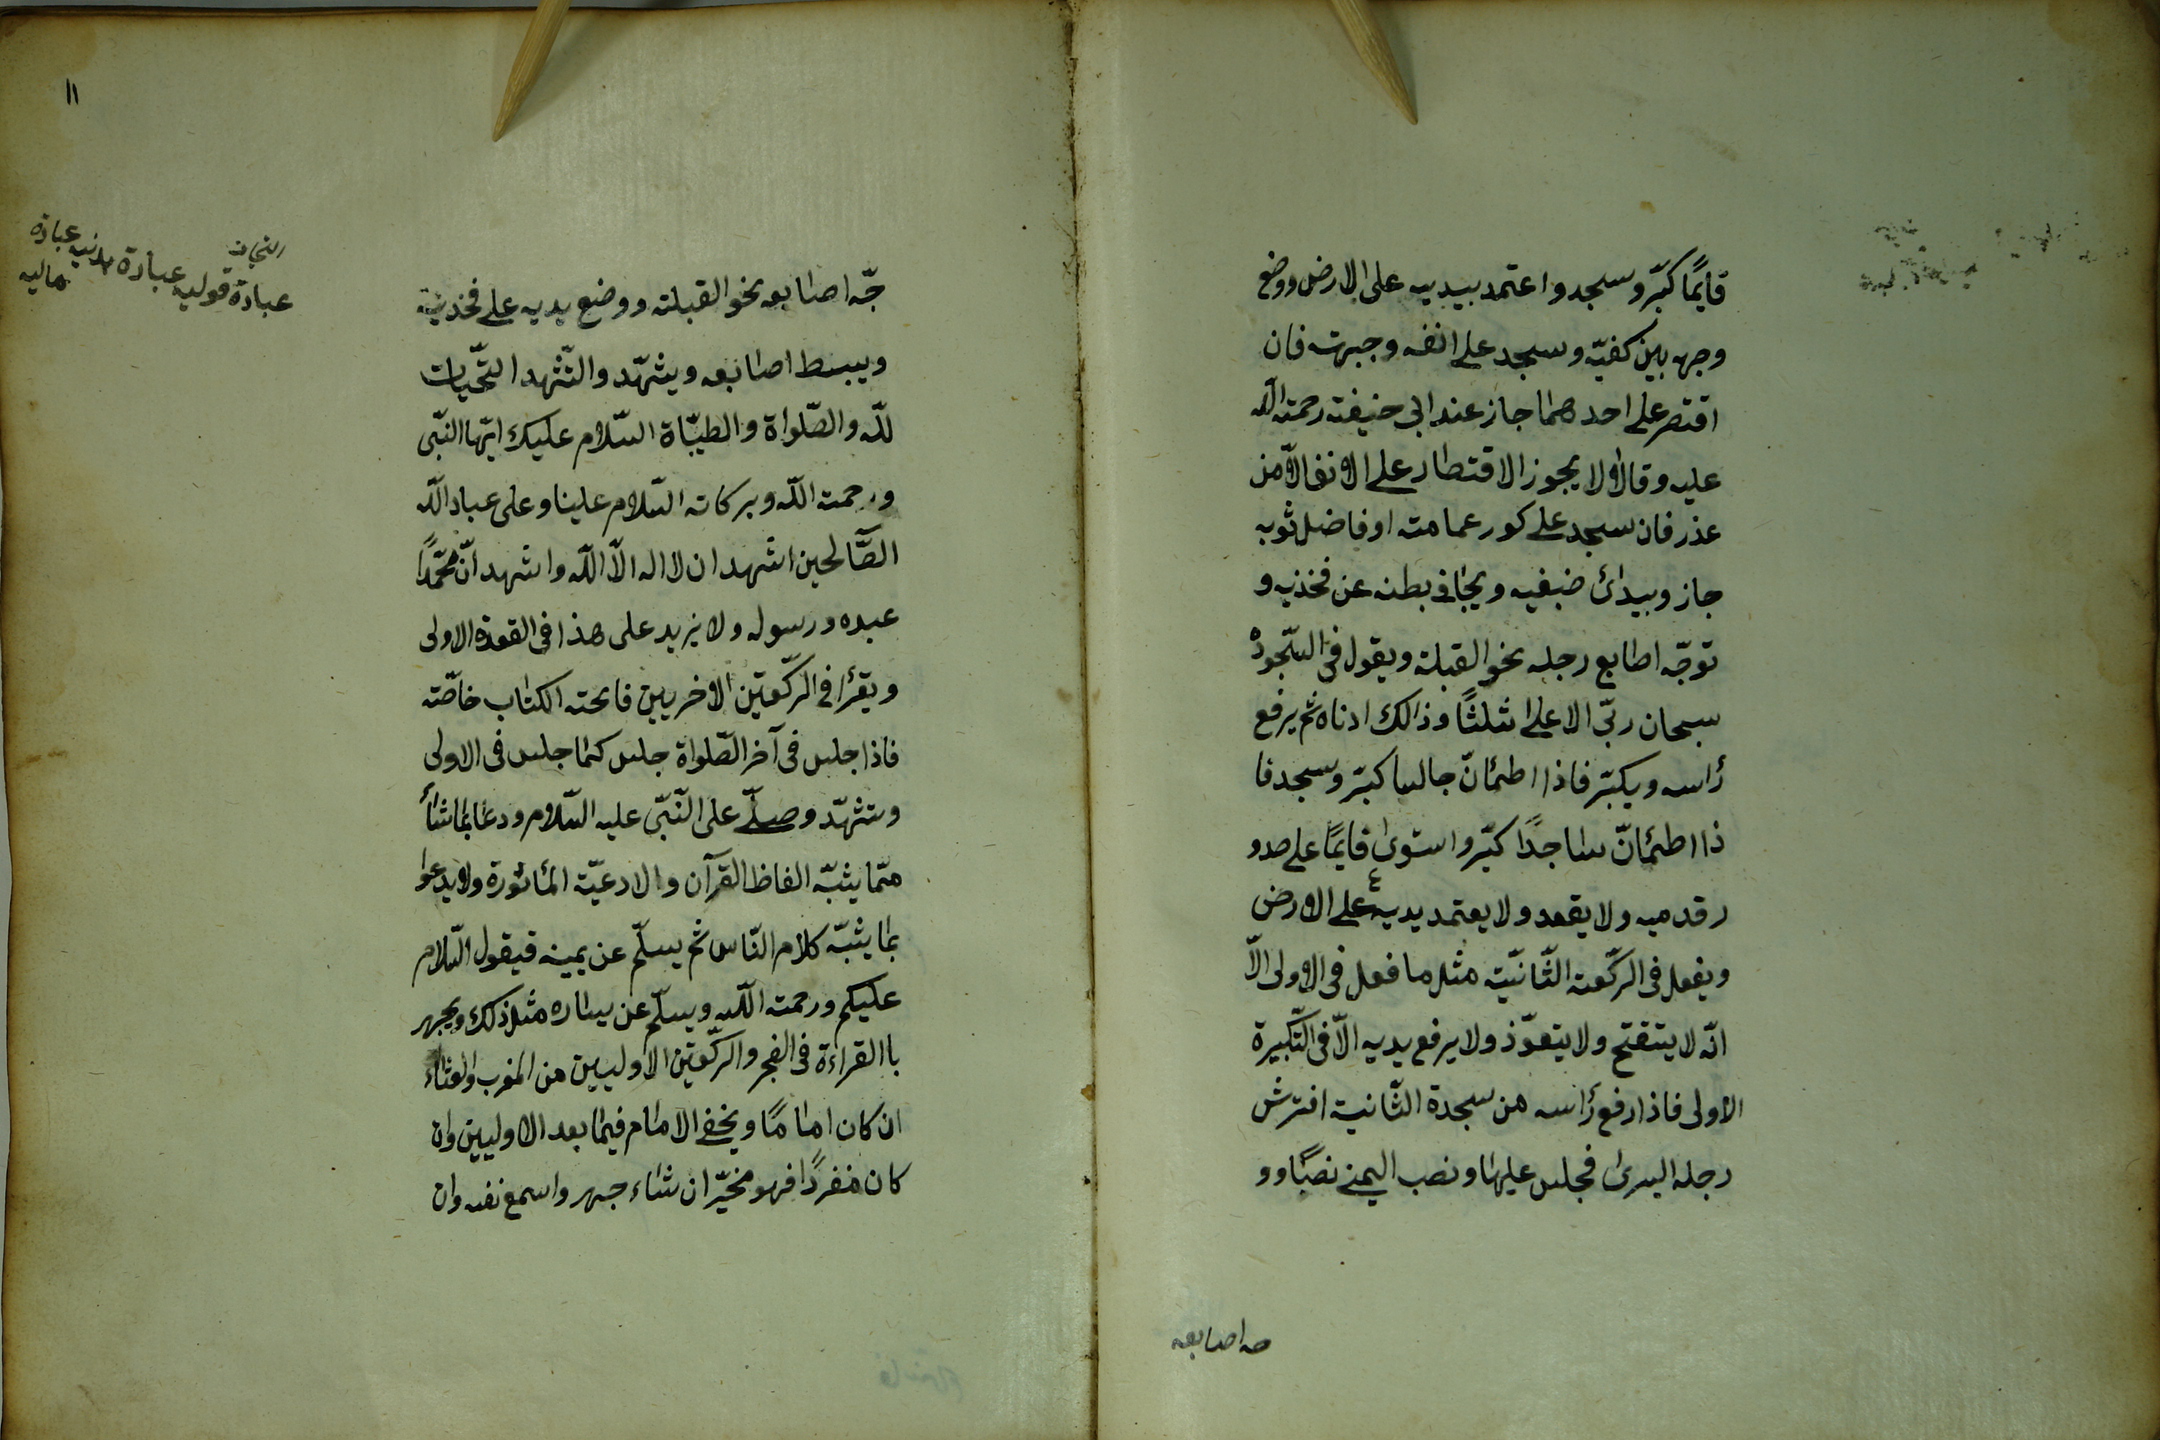 قايمًا كبّر وسجد واعتمد بيديه على الارض ووضع
وجهه بين كفيّه وسجد على انفه وجبهته فان
اقتصر على احدهما جاز عند ابى حنيفته رحمته الله
عليه وقالا لا يجوز الاقتطار على الانف الاّ من
عذر فان سجد على كور عمامته او فاضل ثوبه
جاز ويبدائ ضبغيه ويجافى بطنه عن فخذيه و
توجّه اطابع رجله نحو القبلة ويقول فى السّجوده
سبحان ربّى الاعلى ثلثًا وذالك ادناه ثم يرفع
رٔاسه ويكبّر فاذا اطمٔانّ جالسا كبّر وسجد فا
ذا اطمٔانّ ساجدًا كبّر واستوى قايمًا على صدو
ر قدميه ولا يقعد ولا يعتمد يديه على الارض
ويفعل فى الركّعته الثّانيّة مثل ما فعل فى الاولى الاّ
انّه لا يتقتح ولا يتعوّذ ولا يرفع يديه الاّ فى التّكبيرة
الاولى فاذا رفع رٔاسه من سجدة الثّانية افترش
رجله اليسرى فجلس عليها ونصب اليمنى نصبًا وو
جه اصابعه
١١
عبادة قوليه عبادة بدنيه عبادة ماليه
جّه اصابعه نحو القبلته ووضع يديه على فخذيه
ويبسط اصابعه ويشهّد والتّشهد التّحيات
للّه والصّلواة والطيّباة السّلام عليك ايّها النّبى
ورحمته اللّه وبركاته السّلام علينا وعلى عباد اللّه
الصّالحين اشهد ان لا اله الاّ اللّه واشهد انّ محمّدًا
عبده ورسوله ولا يزيد على هذا فى القعدة الاولى
ويقرٔا فى الركّعتين الاخريين فاتحته الكتاب خاصّته
فاذا جلس فى آخر الصّلواة جلس كما جلس فى الاولى
وتشهّد وصلّى على النّبّى عليه السّلام ودعا بما شأ
ممّا يشبّه الفاظ القرآن والادعيّة المٔاثورة ولا يدعوا
بما يشبّه كلام النّاس ثم يسلّم عن يمينه فيقول السّلام
عليكم ورحمته اللّه ويسلّم عن يساره مثل ذلك ويجهر
باالقراءة فى الفجر والركّعتين الاوليين من المغرب والعشاء
ان كان امامًا ويخفى الامام فيما بعد الاوليين وان
كان منفردًا فهو مخيّر ان شاء جهر واسمع نفسه وان